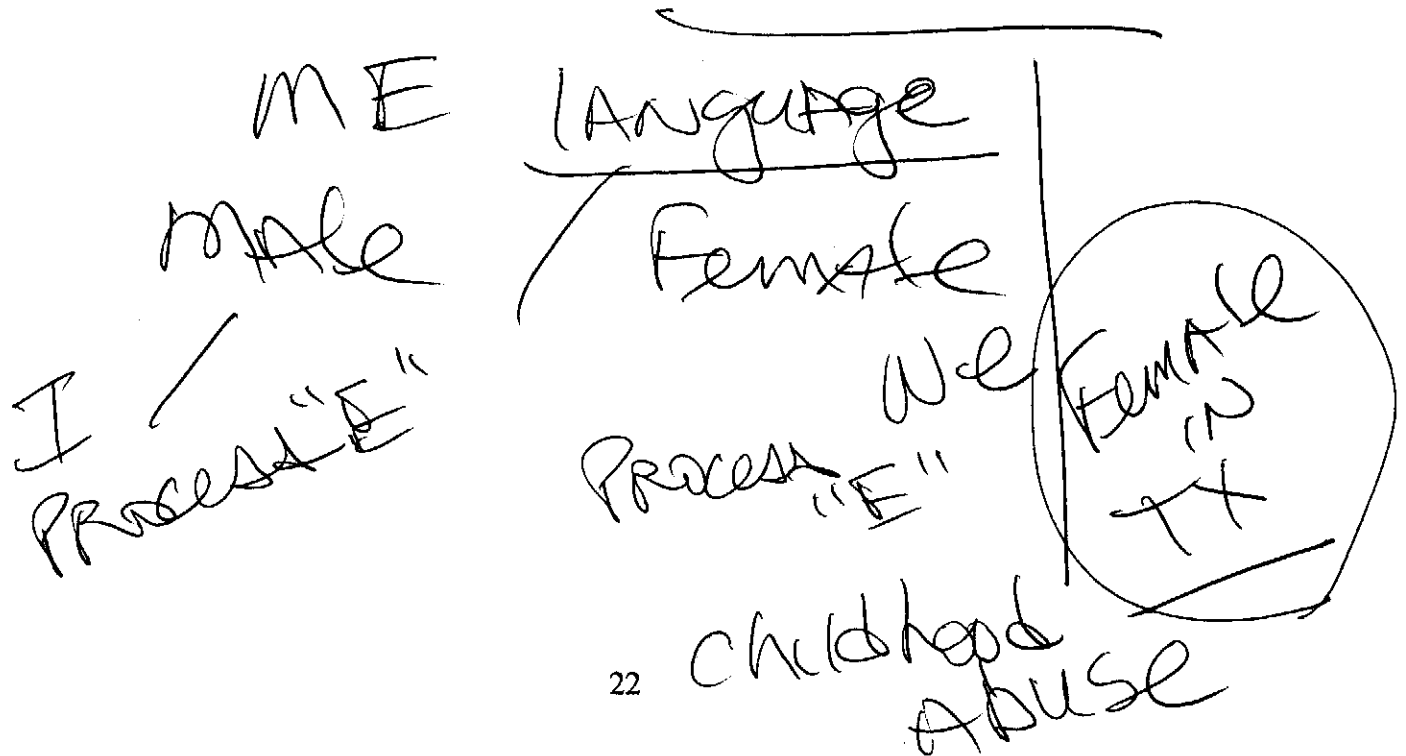 ME language
Male Female
I We
Process "E" Process "E"
Female
IN
TX
Childhood
Abuse
22